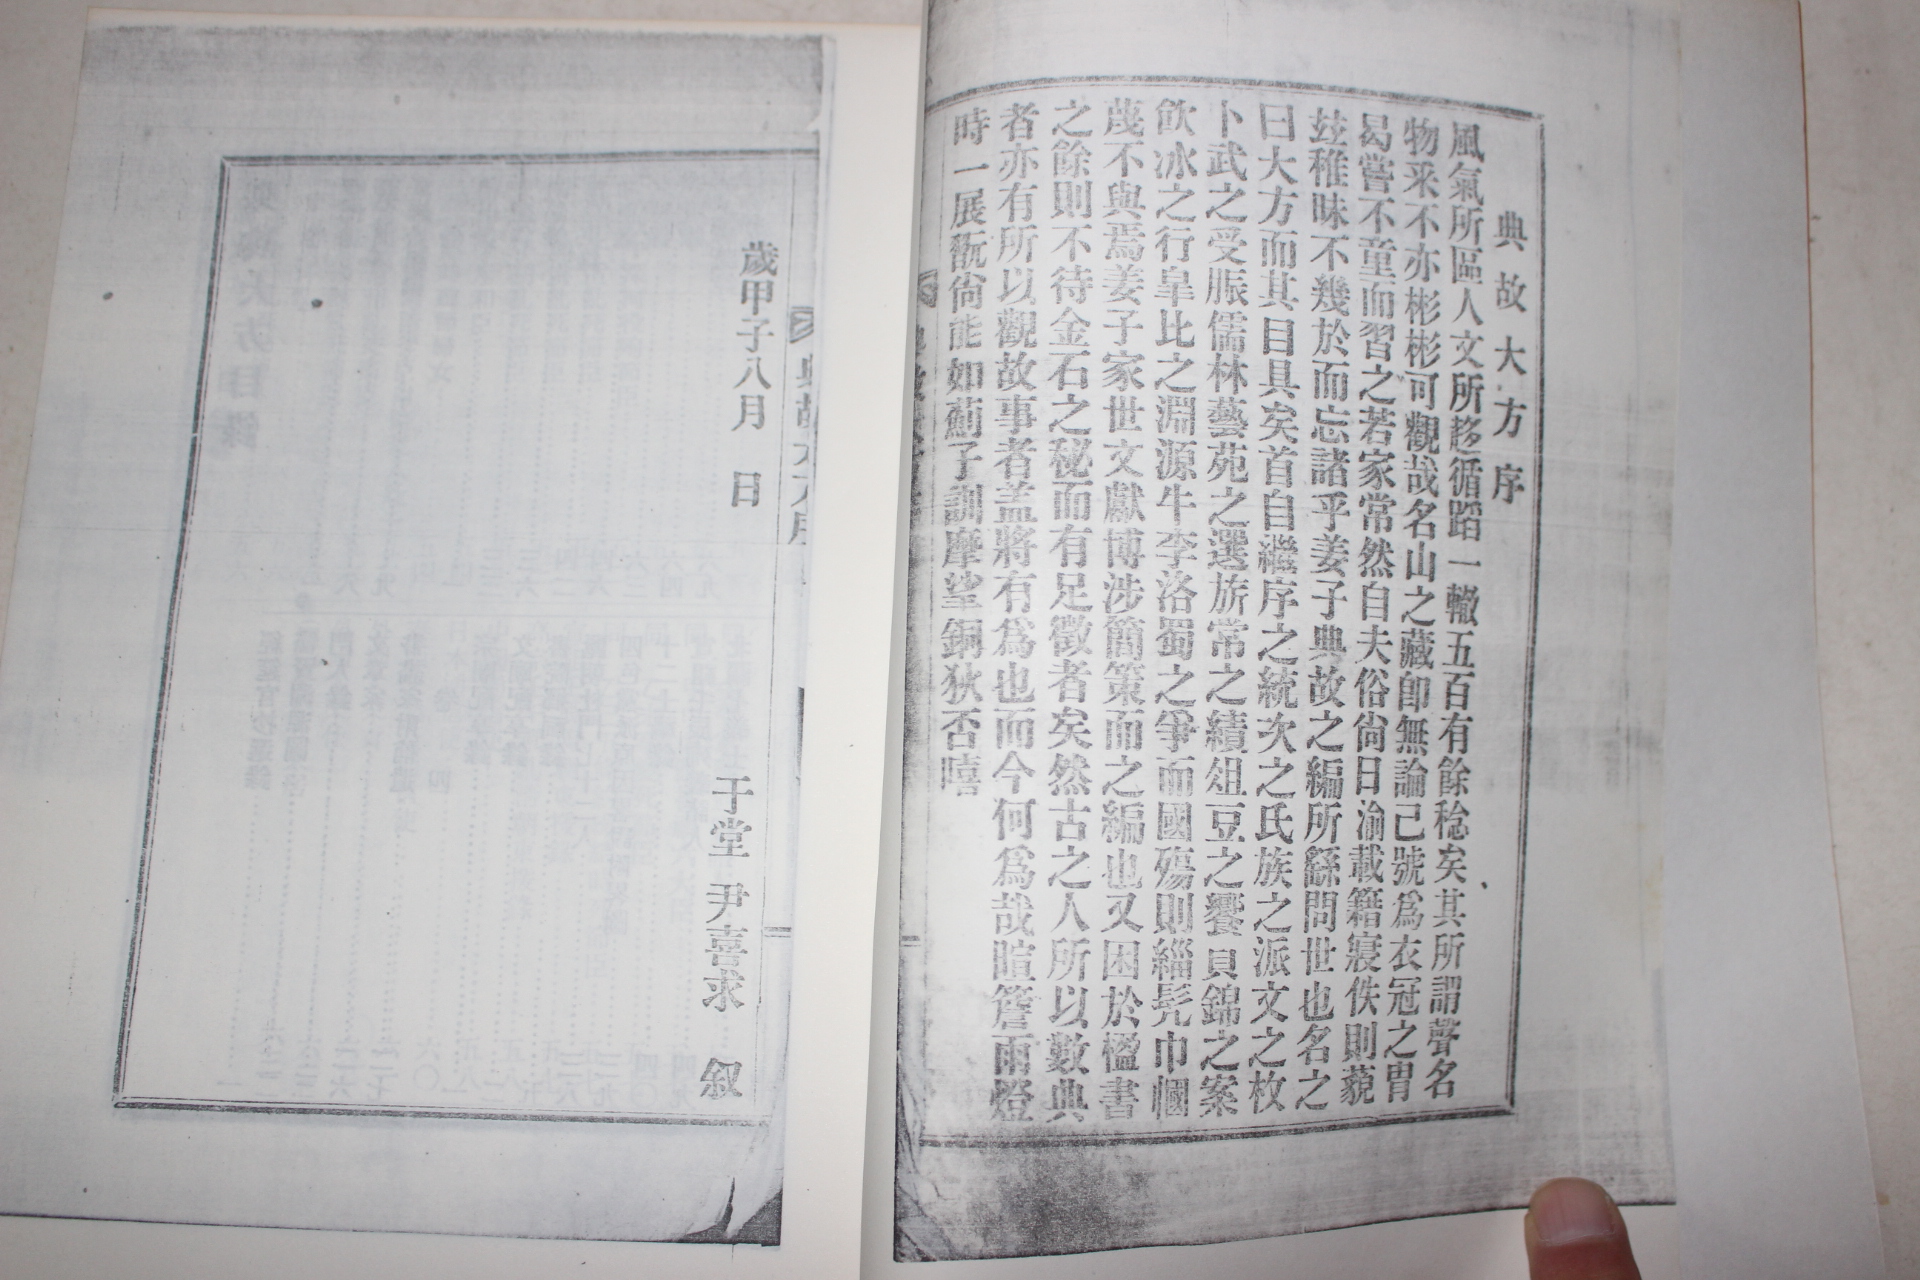 典故大方序
風氣所區人文所趍循蹈一轍五百有餘稔矣其所謂聲名
物采不亦彬彬可觀哉名山之藏卽無論己號爲衣冠之冑
曷嘗不童而習之若家常然自夫俗尙日渝載籍寢佚則藐
玆稚昧不幾於而忘諸乎姜子典故之編所繇問世也名之
曰大方而其目具矣首自繼序之統次之氏族之派文之枚
卜武之受脤儒林藝苑之選旂常之績俎豆之饗貝錦之案
飮冰之行皐比之淵源牛李洛蜀之爭而國殤則緇髡巾幗
蔑不與焉姜子家世文獻博涉簡策而之編也又困於櫺書
之餘則不待金石之秘而有足徵者矣然古之人所以數典
者亦有所以觀故事者盖將有爲也而今何爲哉暄簷雨燈
時一展翫尙能如薊子訓摩挲銅狄否嘻
歲甲子八月　日
于堂　尹喜求　叙